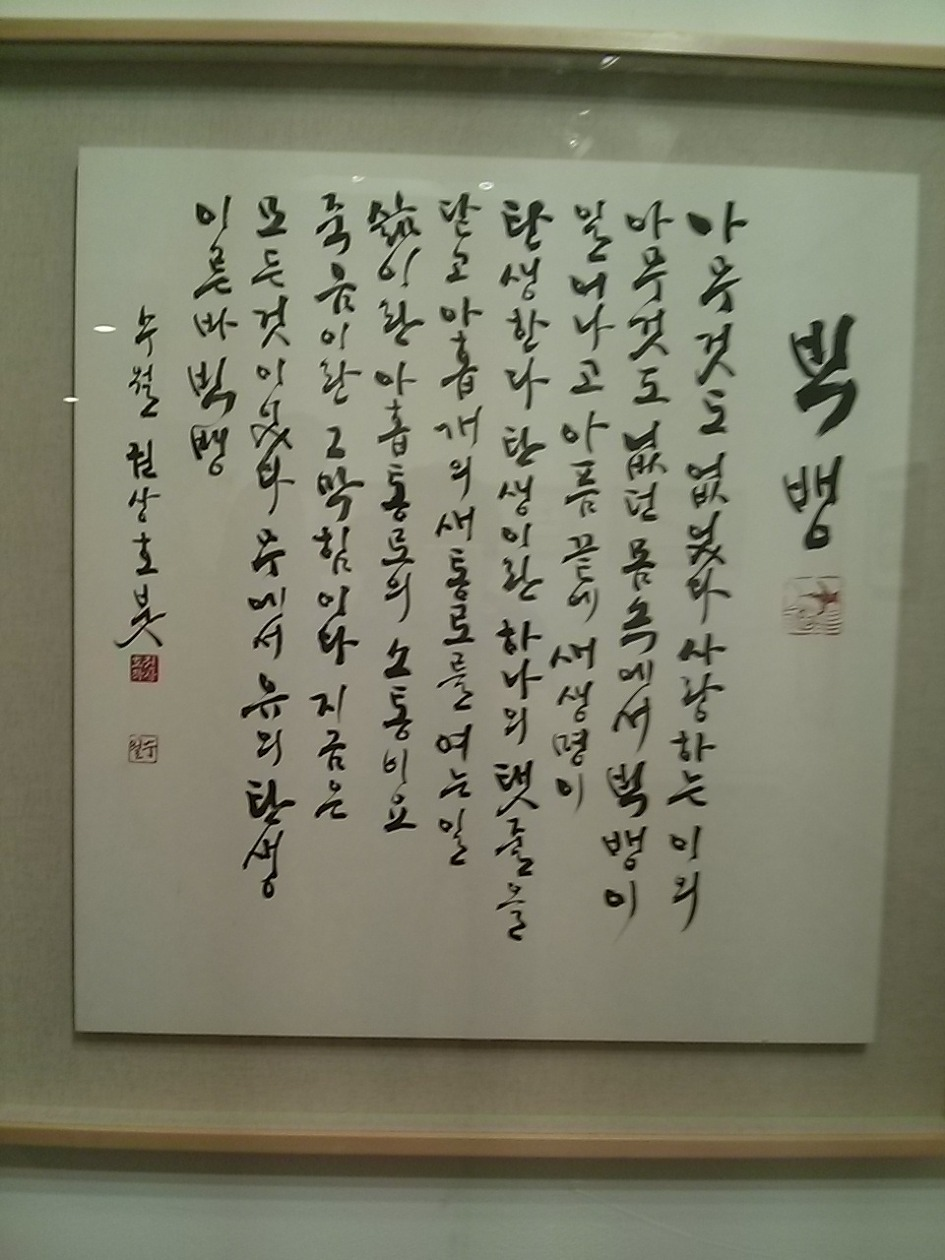 빅뱅
아무것도 없었다 사랑하는 이의
아무것도 없던 몸속에서 빅뱅이
일어나고 아픔 끝에 새 생명이
탄생한다 탄생이란 하나의 탯줄을
닫고 아홉 개의 새 통로를 여는 일
삶이란 아홉 통로의 소통이요
죽음이란 그 막힘이다 지금은
모든 것이 있다 무에서 유의 탄생
이른바 빅뱅
수월 권상호 붓